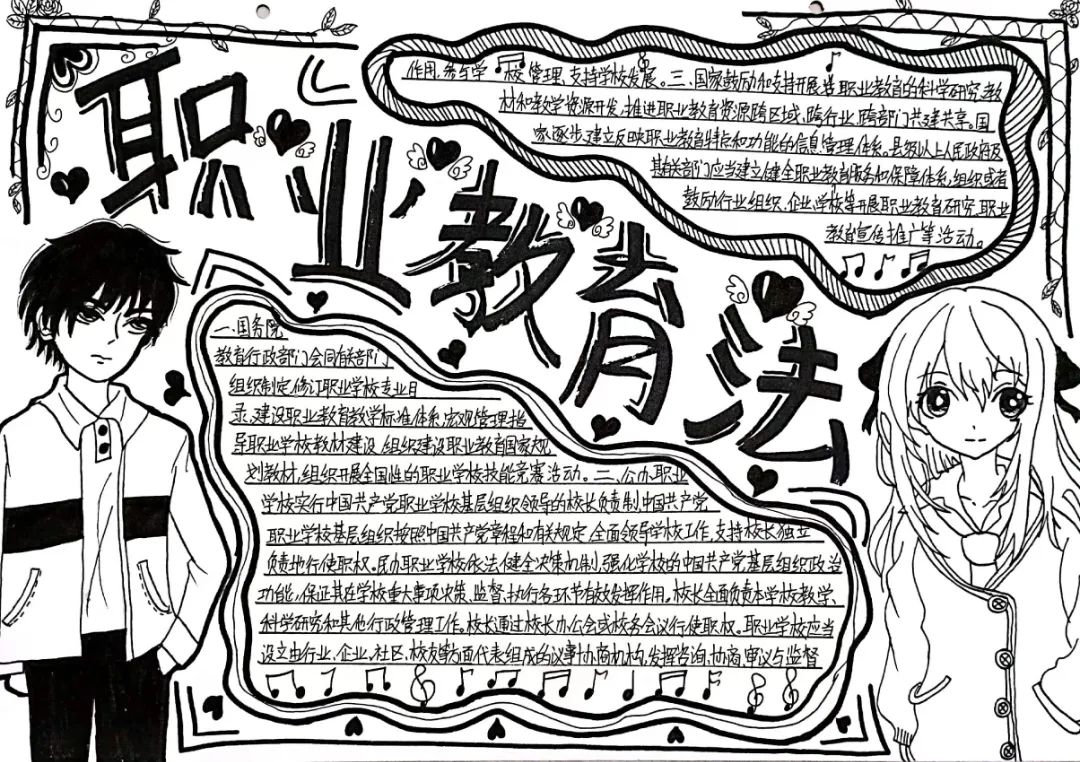 职业教育法
一.国务院
教育行政部门会同有关部门
组织制定、修订职业学校专业目
录,建设职业教育教学标准体系,宏观管理指
导职业学校教材建设,组织建设职业教育国家规
划教材,组织开展全国性的职业学校技能竞赛活动。二、公办职业
学校实行中国共产党职业学校基层组织领导的校长负责制,中国共产党
职业学校基层组织按照中国共产党章程和有关规定,全面领导学校工作,支持校长独立
负责地行使职权。民办职业学校依法健全决策机制,强化学校的中国共产党基层组织政治
功能,保证其在学校重大事项决策、监督、执行各环节有效发挥作用。校长全面负责本学校教学、
科学研究和其他行政管理工作。校长通过校长办公会或校务会议行使职权。职业学校应当
设立由行业、企业、社区、校友等方面代表组成的议事协商机构,发挥咨询、协商、审议与监督
作用,参与学校管理,支持学校发展。三、国家鼓励和支持开展职业教育的科学研究、教
材和教学资源开发,推进职业教育资源跨区域、跨行业、跨部门共建共享。国
家逐步建立反映职业教育特点和功能的信息管理体系。县级以上人民政府及
其有关部门应当建立健全职业教育服务和保障体系,组织或者
鼓励行业组织、企业、学校等开展职业教育研究、职业
教育宣传推广等活动。